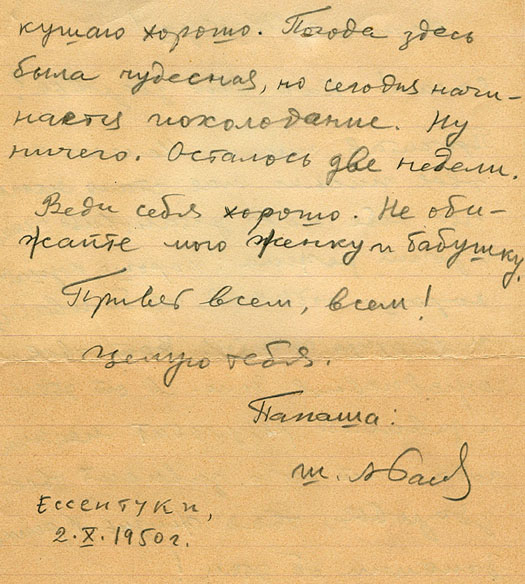 кушаю хорошо. Погода здесь
была чудесная, но сегодня начи-
нается похолодание. Ну
ничего. Осталось две недели.
Веди себя хорошо. Не оби-
жайте мою женку и бабушку.
Привет всем, всем!
Целую тебя.
Папаша:
Ш.
Ессентуки,
2.X.1950г.